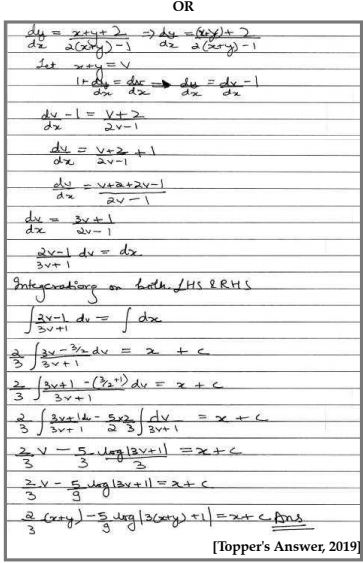 OR
dy/dx = x+y+2 / 2(x+y)-1 ⇒ dy/dx = (x+y)+2 / 2(x+y)-1
Let x+y = v
1+dy/dx = dv/dx ⇒ dy/dx = dv/dx -1
dv/dx -1 = v+2 / 2v-1
dv/dx = v+2 / 2v-1 + 1
dv/dx = v+2+2v-1 / 2v-1
dv/dx = 3v+1 / 2v-1
2v-1 / 3v+1 dv = dx
Integerationg on both LHS & RHS
∫ 2v-1 / 3v+1 dv = ∫ dx
2/3 ∫ 3v-3/2 / 3v+1 dv = x + c
2/3 ∫ 3v+1 -(3/2+1) / 3v+1 dv = x + c
2/3 ∫ 3v+1 / 3v+1 dv - 5/2 x 2/3 ∫ dv / 3v+1 = x + c
2/3 v - 5/3 log|3v+1| / 3 = x + c
2/3 v - 5/9 log|3v+1| = x + c
2/3 (x+y) - 5/9 log|3(x+y)+1| = x + c Ans
[Topper's Answer, 2019]